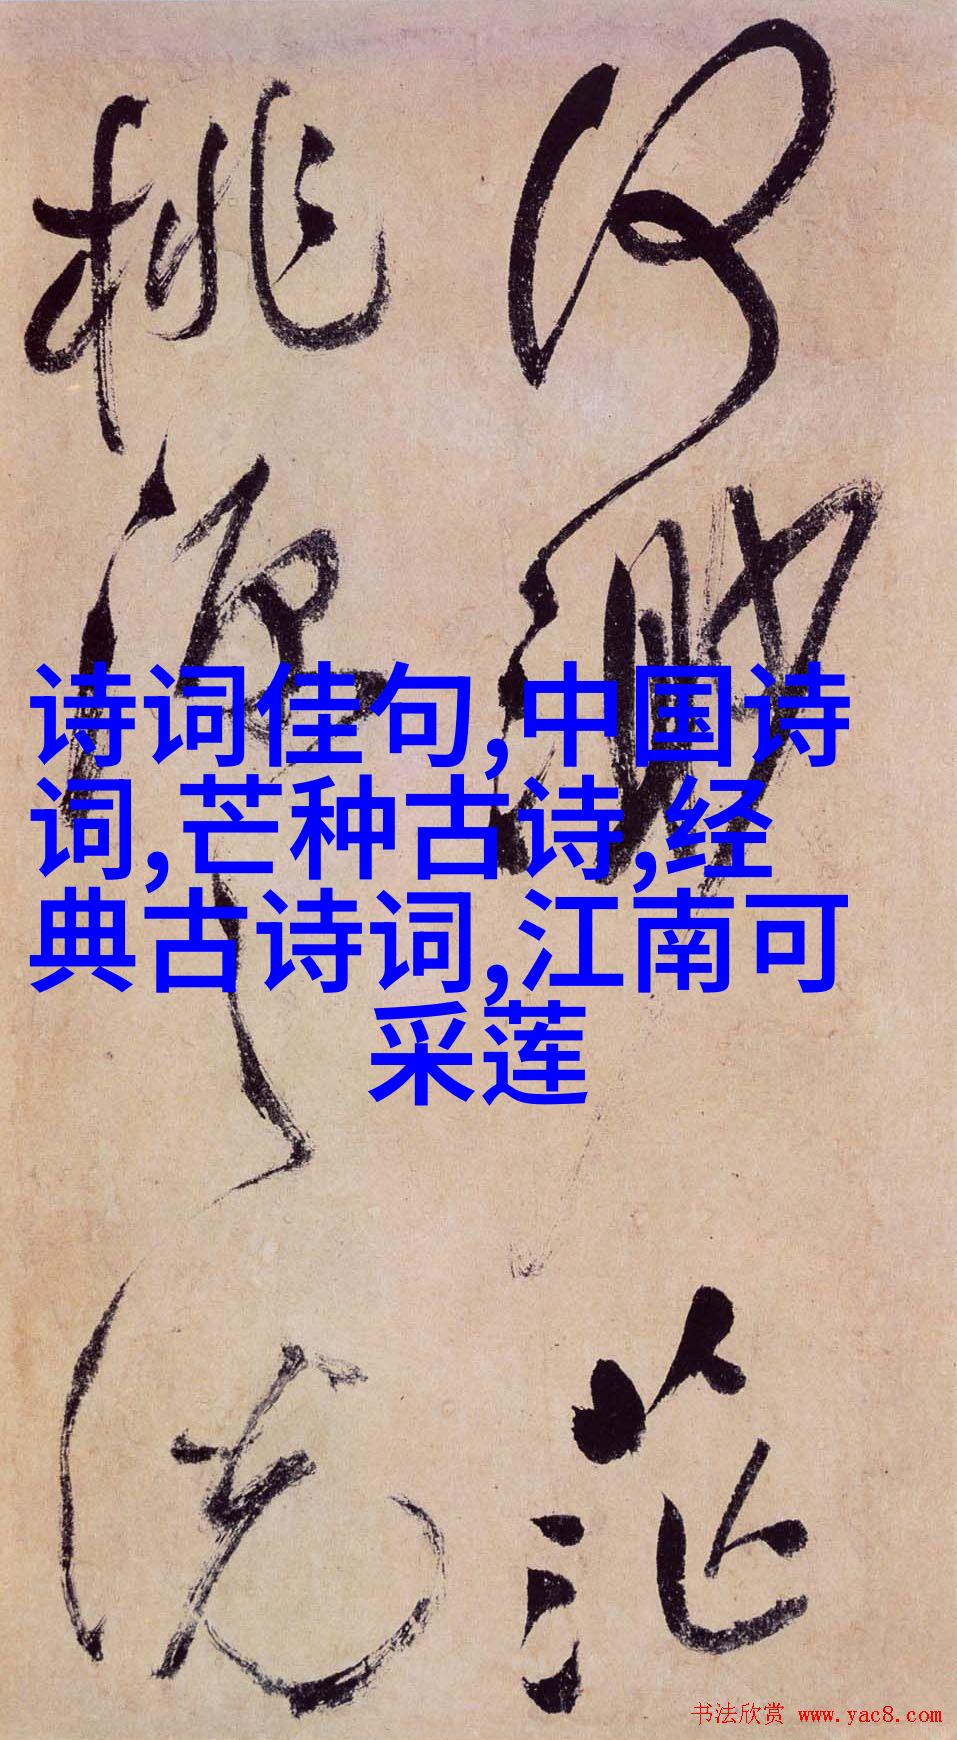 何渺茫
桃源之説
诗词佳句,中国诗
词,芒种古诗,经
典古诗词,江南可
采莲
书法欣赏 www.yac8.com